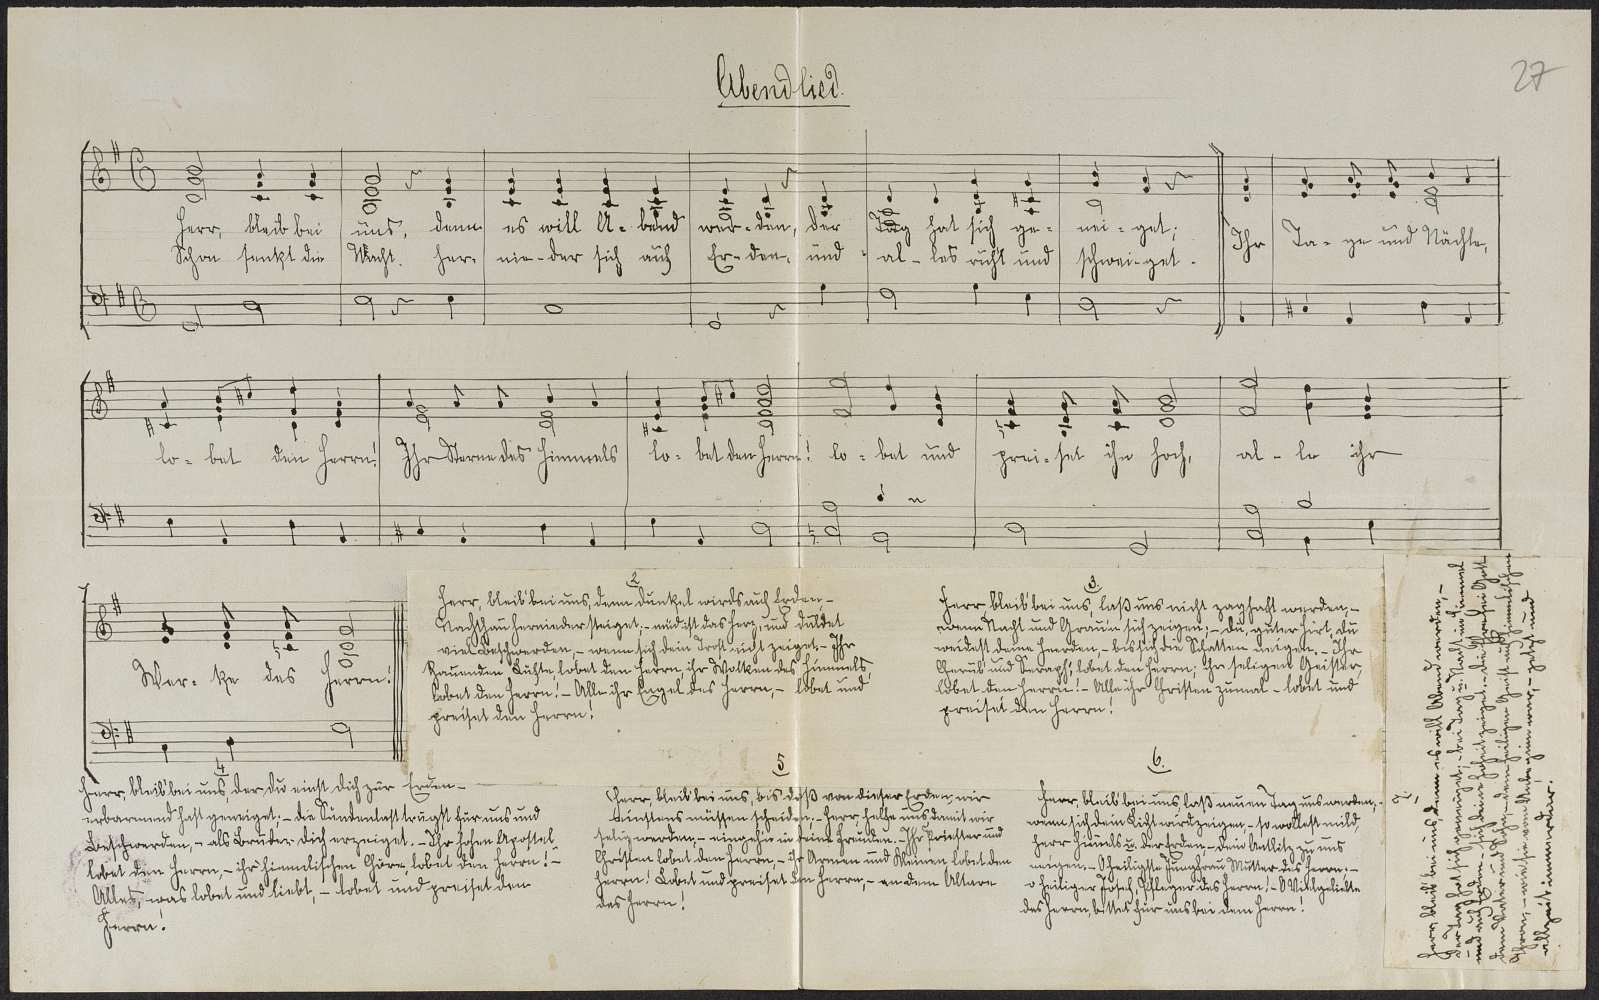 Abendlied.
27
Herr, bleib bei uns, denn es will A-bend wer-den, der Tag hat sich ge-nei-get;
Schon senkt die Nacht her-nie-der sich auf Er-den, und al-les ruht und schwei-get.
Ihr Ta-ge und Nächte,
lo-bet den Herrn! Ihr Sterne des Himmels lo-bet den Herrn! lo-bet und prei-set ihn hoch, al-le ihr
Wer-ke des Herrn!
2
Herr, bleib' bei uns, denn dunkel wirds auf Erden,-
Nachtthau herniedersteiget;- müd ist das Herz, und duldet
viel Beschwerden,- wenn sich dein Trost nicht zeiget.- Ihr
Lüfte, lobet den Herrn, ihr Wolken des Himmels,
lobet den Herrn!- Alle ihr Engel des Herrn,- lobet und
preiset den Herrn!
3.
Herr bleib' bei uns, laß uns nicht zaghaft werden,-
wenn Nacht und Grau'n sich zeigen;- Du, guter Hirt, du
weidest deine Heerden,- bis sich die Schatten neigen.- Ihr
Cherub und Seraph', lobet den Herrn; Ihr seligen Geister,
lobet den Herrn!- Alle ihr Christen zumal- lobet und
preiset den Herrn!
4
Herr, bleib' bei uns, der du einst dich zur Erden-
erbarmend hast geneiget;- die Sündenlast trugst für uns und
Beschwerden,- als Bruder dich erzeiget.- Ihr hohen Apostel
lobet den Herrn,- ihr himmlischen Chöre, lobet den Herrn!-
Alles, was lobet und liebt,- lobet und preiset den
Herrn!
5
Herr, bleib' bei uns, bis daß von dieser Erden, wir
einstens müssen scheiden,- Herr, helfe uns damit wir
selig werden,- eingehn in deine Freuden.- Ihr Priester und
Christen lobet den Herrn,- ihr Armen und Kleinen lobet den
Herrn! Lobet und preiset den Herrn,- an dem Altare
des Herrn!
6.
Herr, bleib' bei uns laß neuen Tag uns werden,-
wenn sich dein Licht wird zeigen,- so wollest mild,
Herr Himmels u. der Erden,- dein Antlitz zu uns
neigen.- O heiligste Jungfrau, Mutter des Herrn,-
o heiliger Josef, Pfleger des Herrn!- O Vielgeliebte
des Herrn, bittet für uns bei dem Herrn!
7.
Herr, bleib' bei uns, denn es will Abend werden,-
der Tag hat sich geneiget,